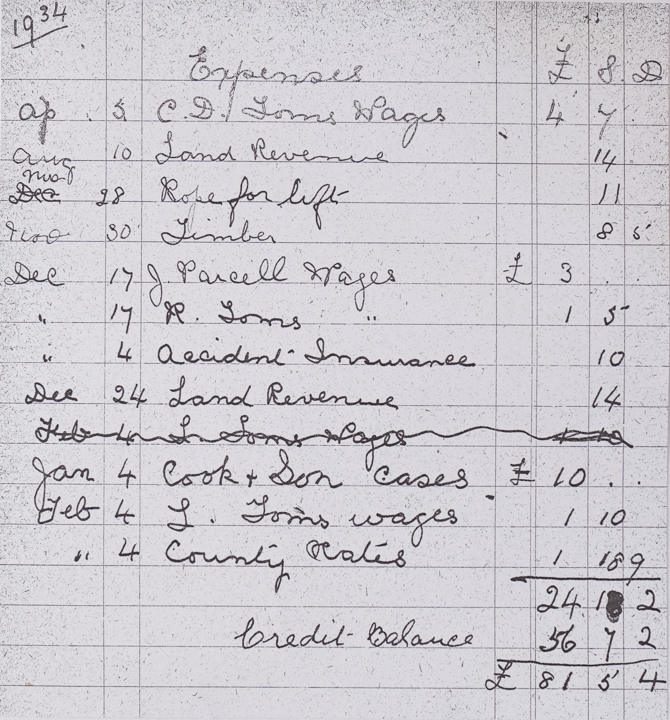 1934
Expenses £ S. D
Ap. 5 C.D. Toms Wages 4 7
Aug 10 Land Revenue 14
Nov
Dec 28 Rope for lift 11
Nov 30 Timber 8 5
Dec 17 J. Parcell Wages £ 3 . .
" 17 R. Toms " 1 5
" 4 Accident Insurance 10
Dec 24 Land Revenue 14
Feb 4 L. Toms Wages 1 10
Jan 4 Cook + Son Cases £ 10 . .
Feb 4 L. Toms wages 1 10
" 4 County Rates 1 18 9
24 18 2
Credit Balance 56 7 2
£ 81 5 4